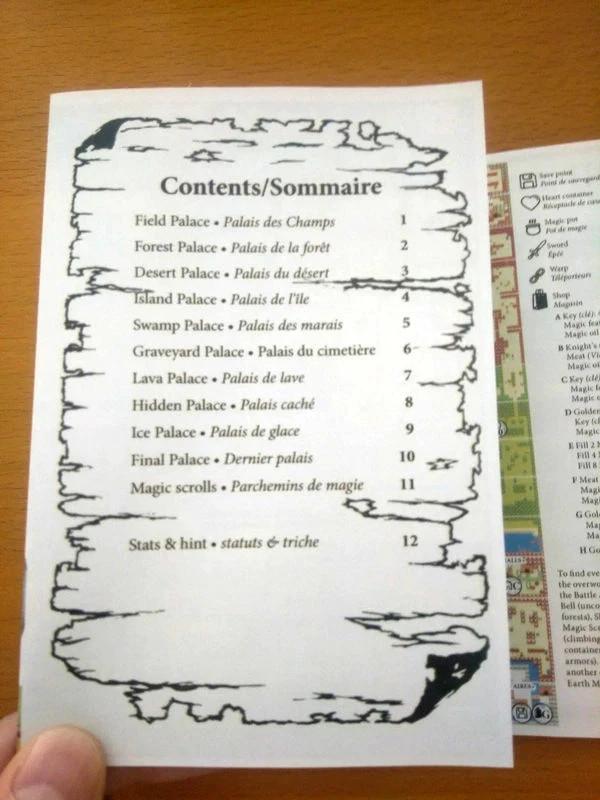 Contents/Sommaire
Field Palace • Palais des Champs 1
Forest Palace • Palais de la forêt 2
Desert Palace • Palais du désert 3
Island Palace • Palais de l'île 4
Swamp Palace • Palais des marais 5
Graveyard Palace • Palais du cimetière 6
Lava Palace • Palais de lave 7
Hidden Palace • Palais caché 8
Ice Palace • Palais de glace 9
Final Palace • Dernier palais 10
Magic scrolls • Parchemins de magie 11
Stats & hint • statuts & triche 12
Save point
Point de sauvegard
Heart container
Réceptacle de cœur
Magic pot
Pot de magie
Sword
Épée
Warp
Téléporteurs
Shop
Magasin
A Key (clé):
Magic
Magic oil
B Knight's
Meat
Magic oil
C Key (clé)
Magic
Magic
D Golden
Key
Magic
E Fill 2
Fill 4
Fill 8
F Meat
Magi
Magi
G Gold
Ma
Ma
H Go
To find eve
the overwo
the Battle
Bell (unco
forests), Sh
Magic Scr
(climbing
container
armors).
another
Earth M